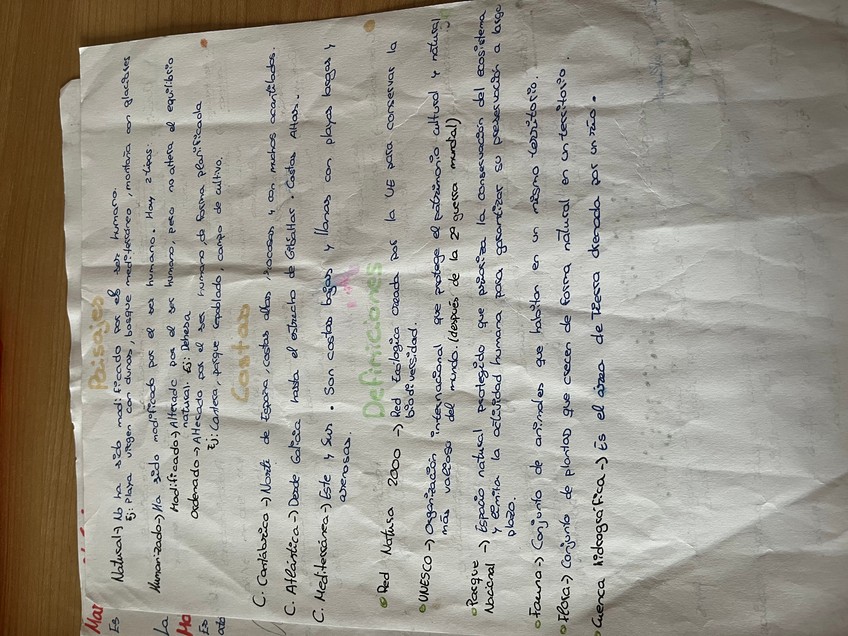 Paisajes
Natural → No ha sido modificado por el ser humano.
Ej: Playa virgen con dunas, bosque mediterráneo, montaña con glaciares
Humanizado → Ha sido modificado por el ser humano. Hay 2 tipos:
Modificado → Alterado por el ser humano, pero no altera el equilibrio
natural. Ej: Dehesa
Ordenado → Alterado por el ser humano, de forma planificada
Ej: Cantera, parque repoblado, campo de cultivo.
Costas
C. Cantábrica → Norte de España, costas altas, rocosas y con muchos acantilados.
C. Atlántica → Desde Galicia hasta el estrecho de Gibraltar. Costas Altas.
C. Mediterránea → Este y Sur. Son costas bajas y llanas con playas largas y
arenosas.
Definiciones
Red Natura 2000 → Red Ecológica creada por la UE para conservar la
biodiversidad.
UNESCO → Organización internacional que protege el patrimonio cultural y natural
más valioso del mundo. (después de la 2ª guerra mundial)
Parque Nacional → Espacio natural protegido que prioriza la conservación del ecosistema
y limita la actividad humana para garantizar su preservación a largo
plazo.
Fauna → Conjunto de animales que habitan en un mismo territorio.
Flora → Conjunto de plantas que crecen de forma natural en un territorio.
Cuenca hidrográfica → Es el área de Tierra drenada por un río.
Mar
Es
La
Mo
Es